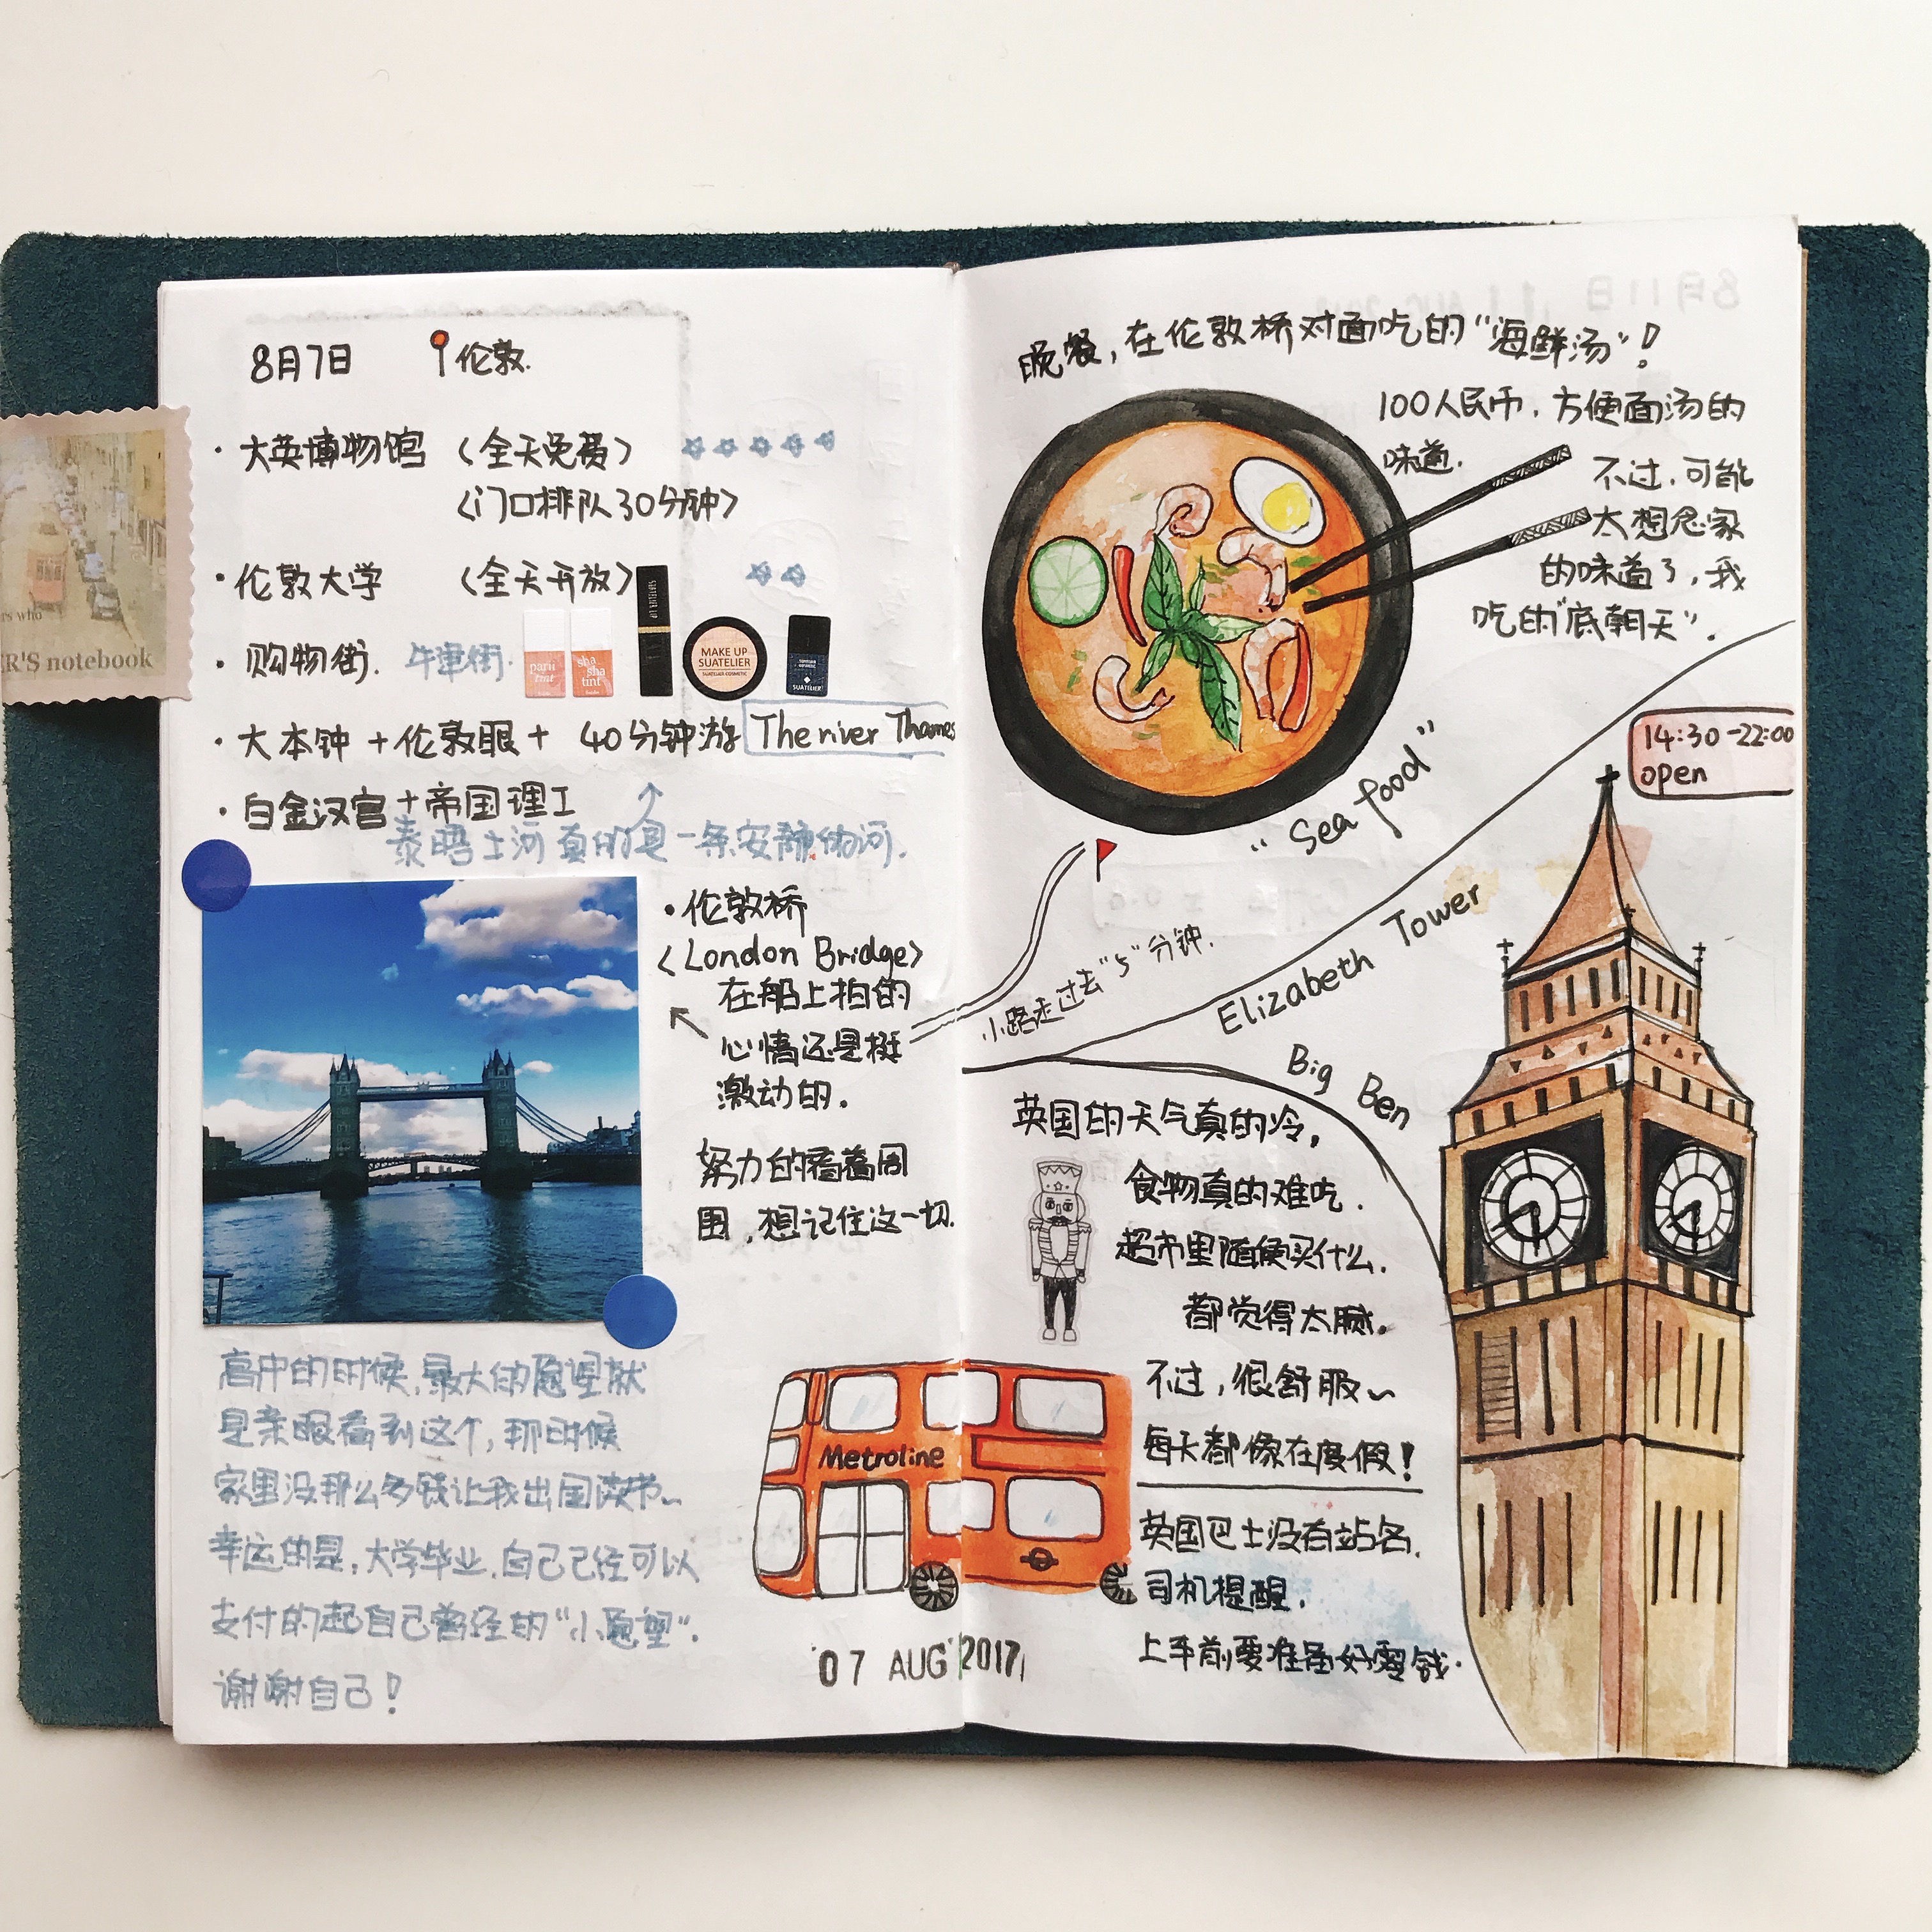 8月7日 伦敦.
· 大英博物馆 (全天免费)
<门口排队30分钟>
· 伦敦大学 (全天开放)
· 购物街. 牛津街.
parii tint
sha sha tint
MAKE UP
SUATELIER
SUATELIER COSMETIC
SUATELIER
· 大本钟 + 伦敦眼 + 40分钟游 The river Thames
· 白金汉宫 + 帝国理工
泰晤士河真的是一条安静的河.
R'S notebook
· 伦敦桥
<London Bridge>
在船上拍的
心情还是挺
激动的.
努力的看着周
围,想记住这一切.
高中的时候,最大的愿望就
是亲眼看到这个,那时候
家里没那么多钱让我出国读书~
幸运的是,大学毕业,自己已经可以
支付的起自己曾经的“小愿望”.
谢谢自己!
Metroline
07 AUG 2017
晚餐,在伦敦桥对面吃的“海鲜汤”!
100人民币.方便面汤的
味道.
不过,可能
太想念家
的味道了,我
吃的“底朝天”.
“Sea food”
小路走过去“5”分钟.
14:30-22:00
open
Elizabeth Tower
Big Ben
英国的天气真的冷,
食物真的难吃.
超市里随便买什么.
都觉得太腻.
不过,很舒服~
每天都像在度假!
英国巴士没有站名.
司机提醒.
上车前要准备好零钱.